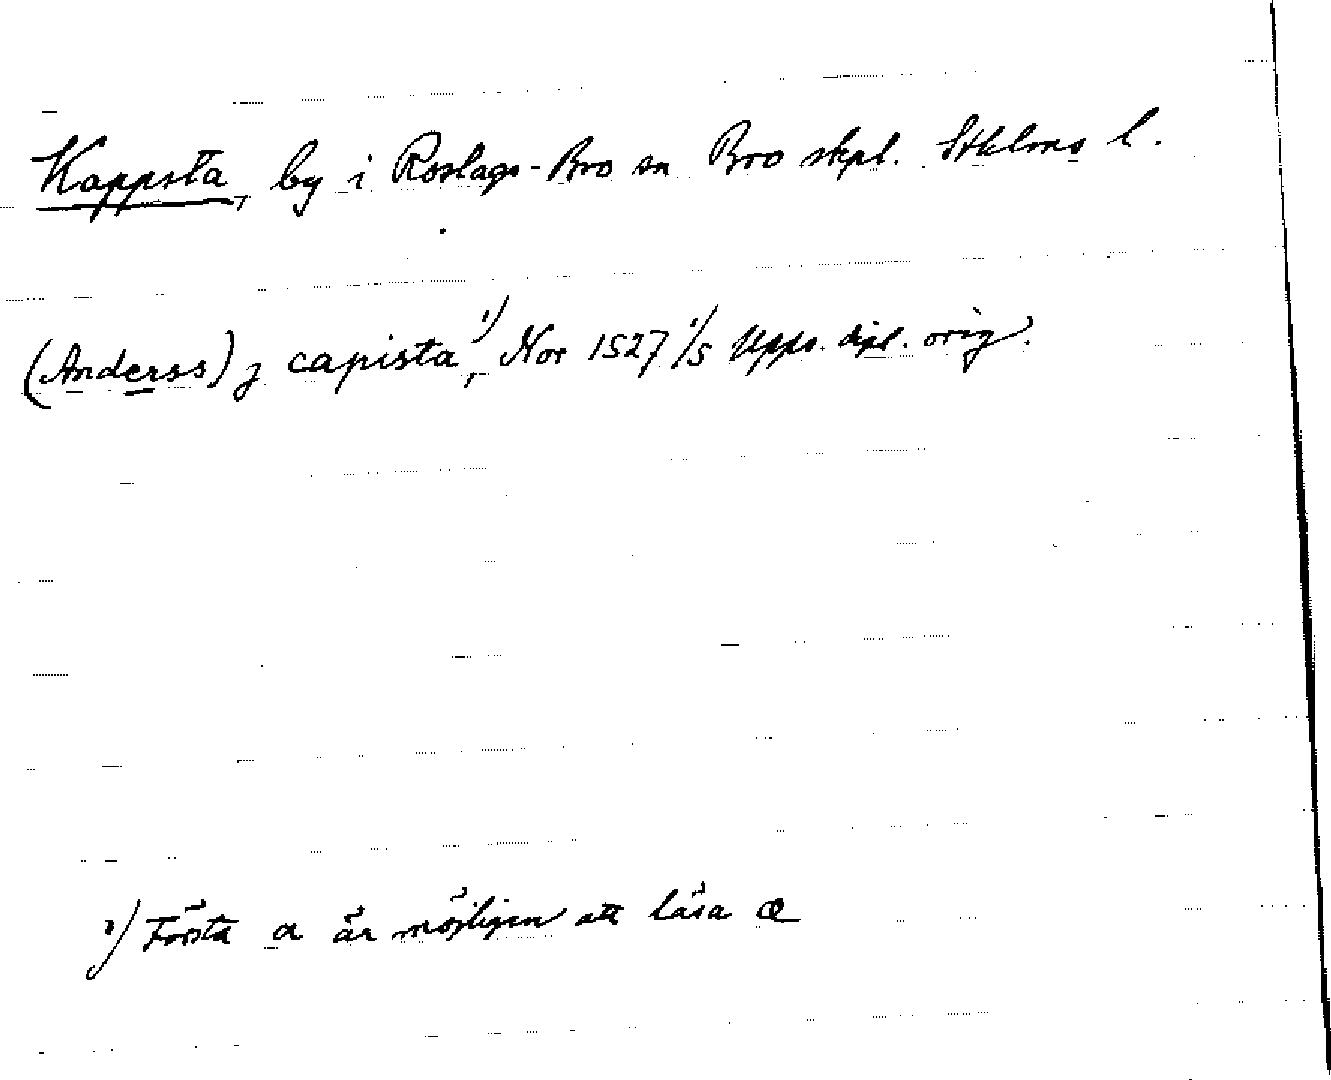 Kappsta, by i Roslags-Bro sn Bro skpl. Sthlms l.
(Anderss) j capista ¹⁾, Nor 1527 1/5 Upps. dipl. orig.
¹⁾ Första a är möjligen att läsa æ